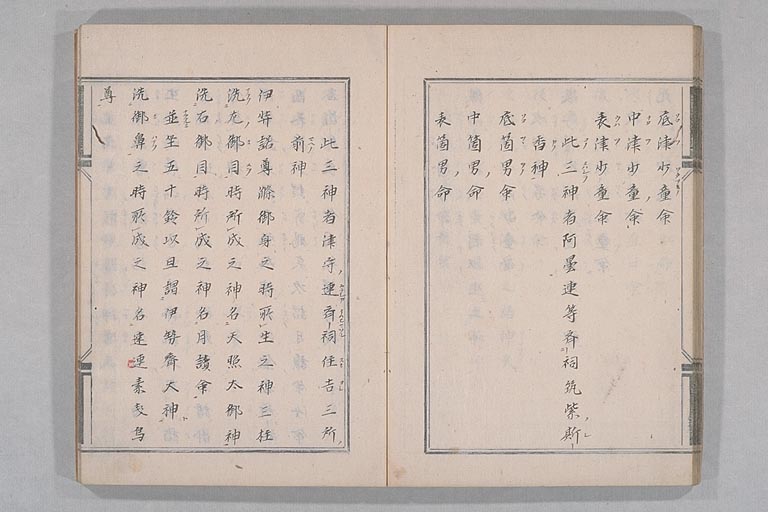 底津少童命
中津少童命
表津少童命
此三神者阿曇連等斎祠筑紫斯
香神
底箇男命
中箇男命
表箇男命
此三神者津守連斎祠住吉三所
前神
伊弉諾尊滌御身之時所生之神三柱
洗左御目時所成之神名天照太御神
洗右御目時所成之神名月讀命
並坐五十鈴以旦謂伊勢齋大神
洗御鼻之時所成之神名速連素戔烏
尊